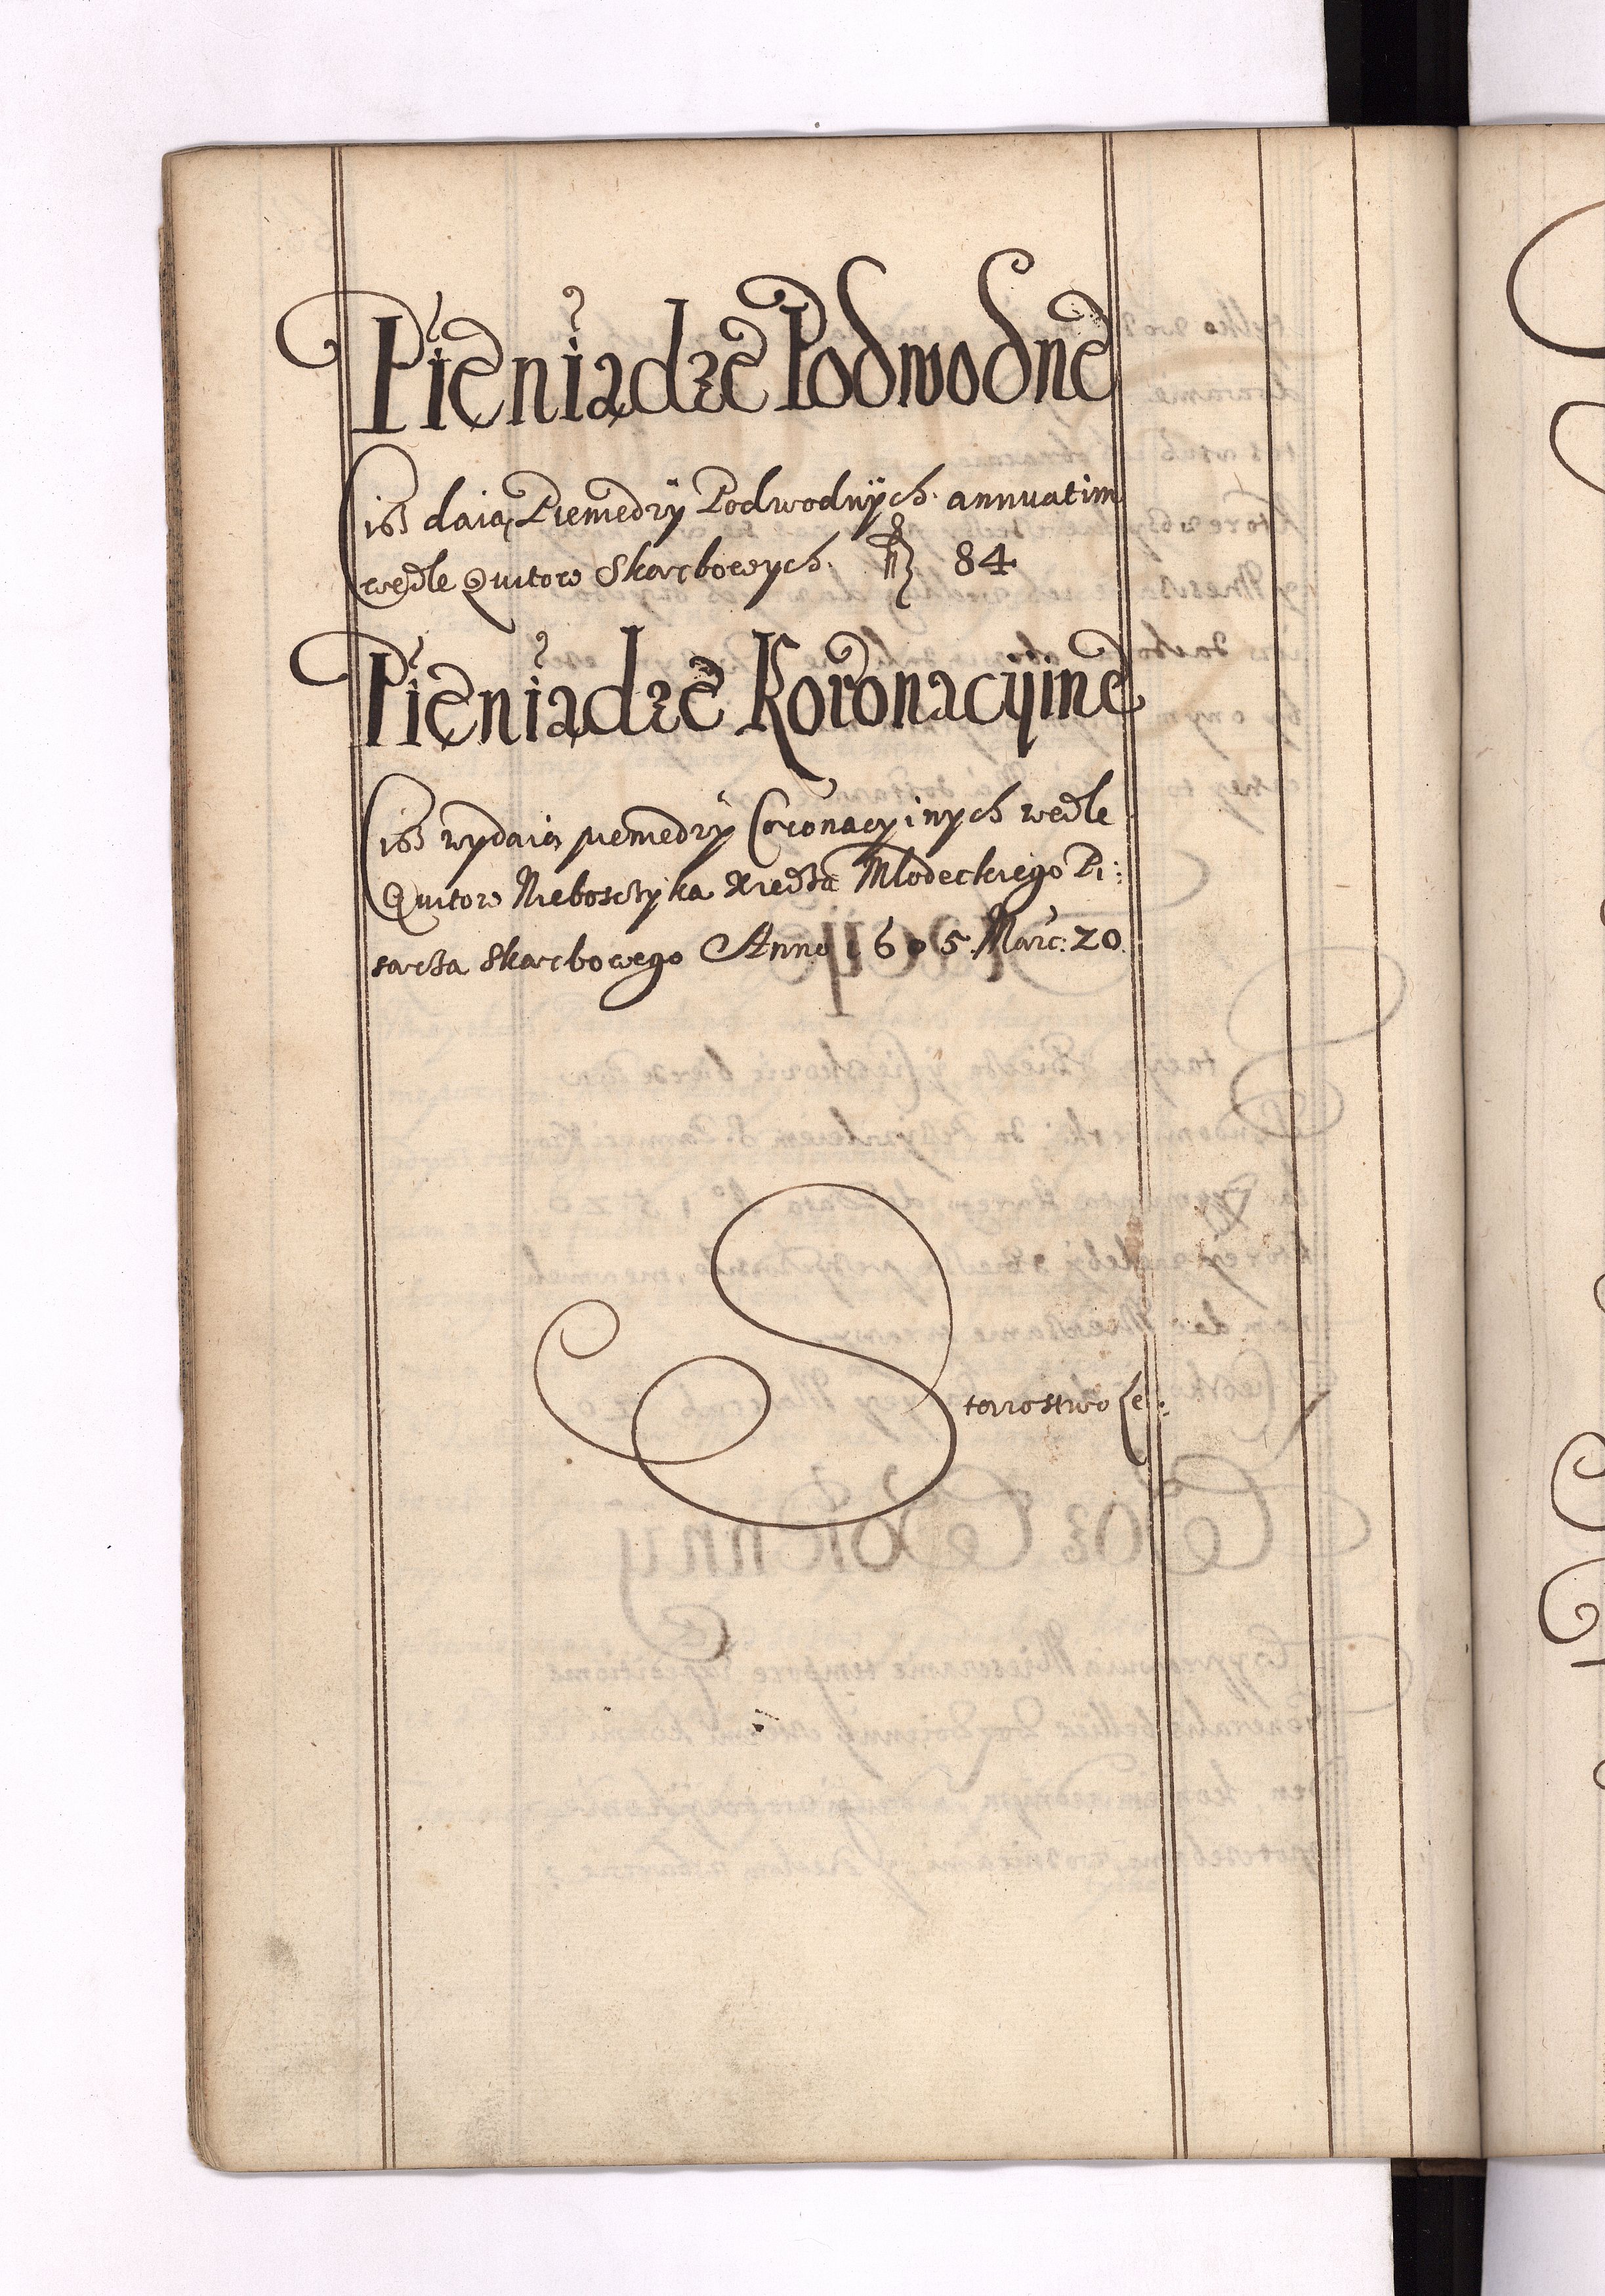 Pieniadze Podwodne
Ciż daią Pieniedzÿ Podwodnÿch. annuatim
wedle Quitow Skarbowych. 84
Pieniadze Koronacÿine
Ciż wydaią pieniedzÿ Coronacyinych wedle
Quitow Nieboszczyka Xiedza Mlodeckiego Pi:
sarza Skarbowego Anno 1605 Marc: 20.
Starrostwo Le: